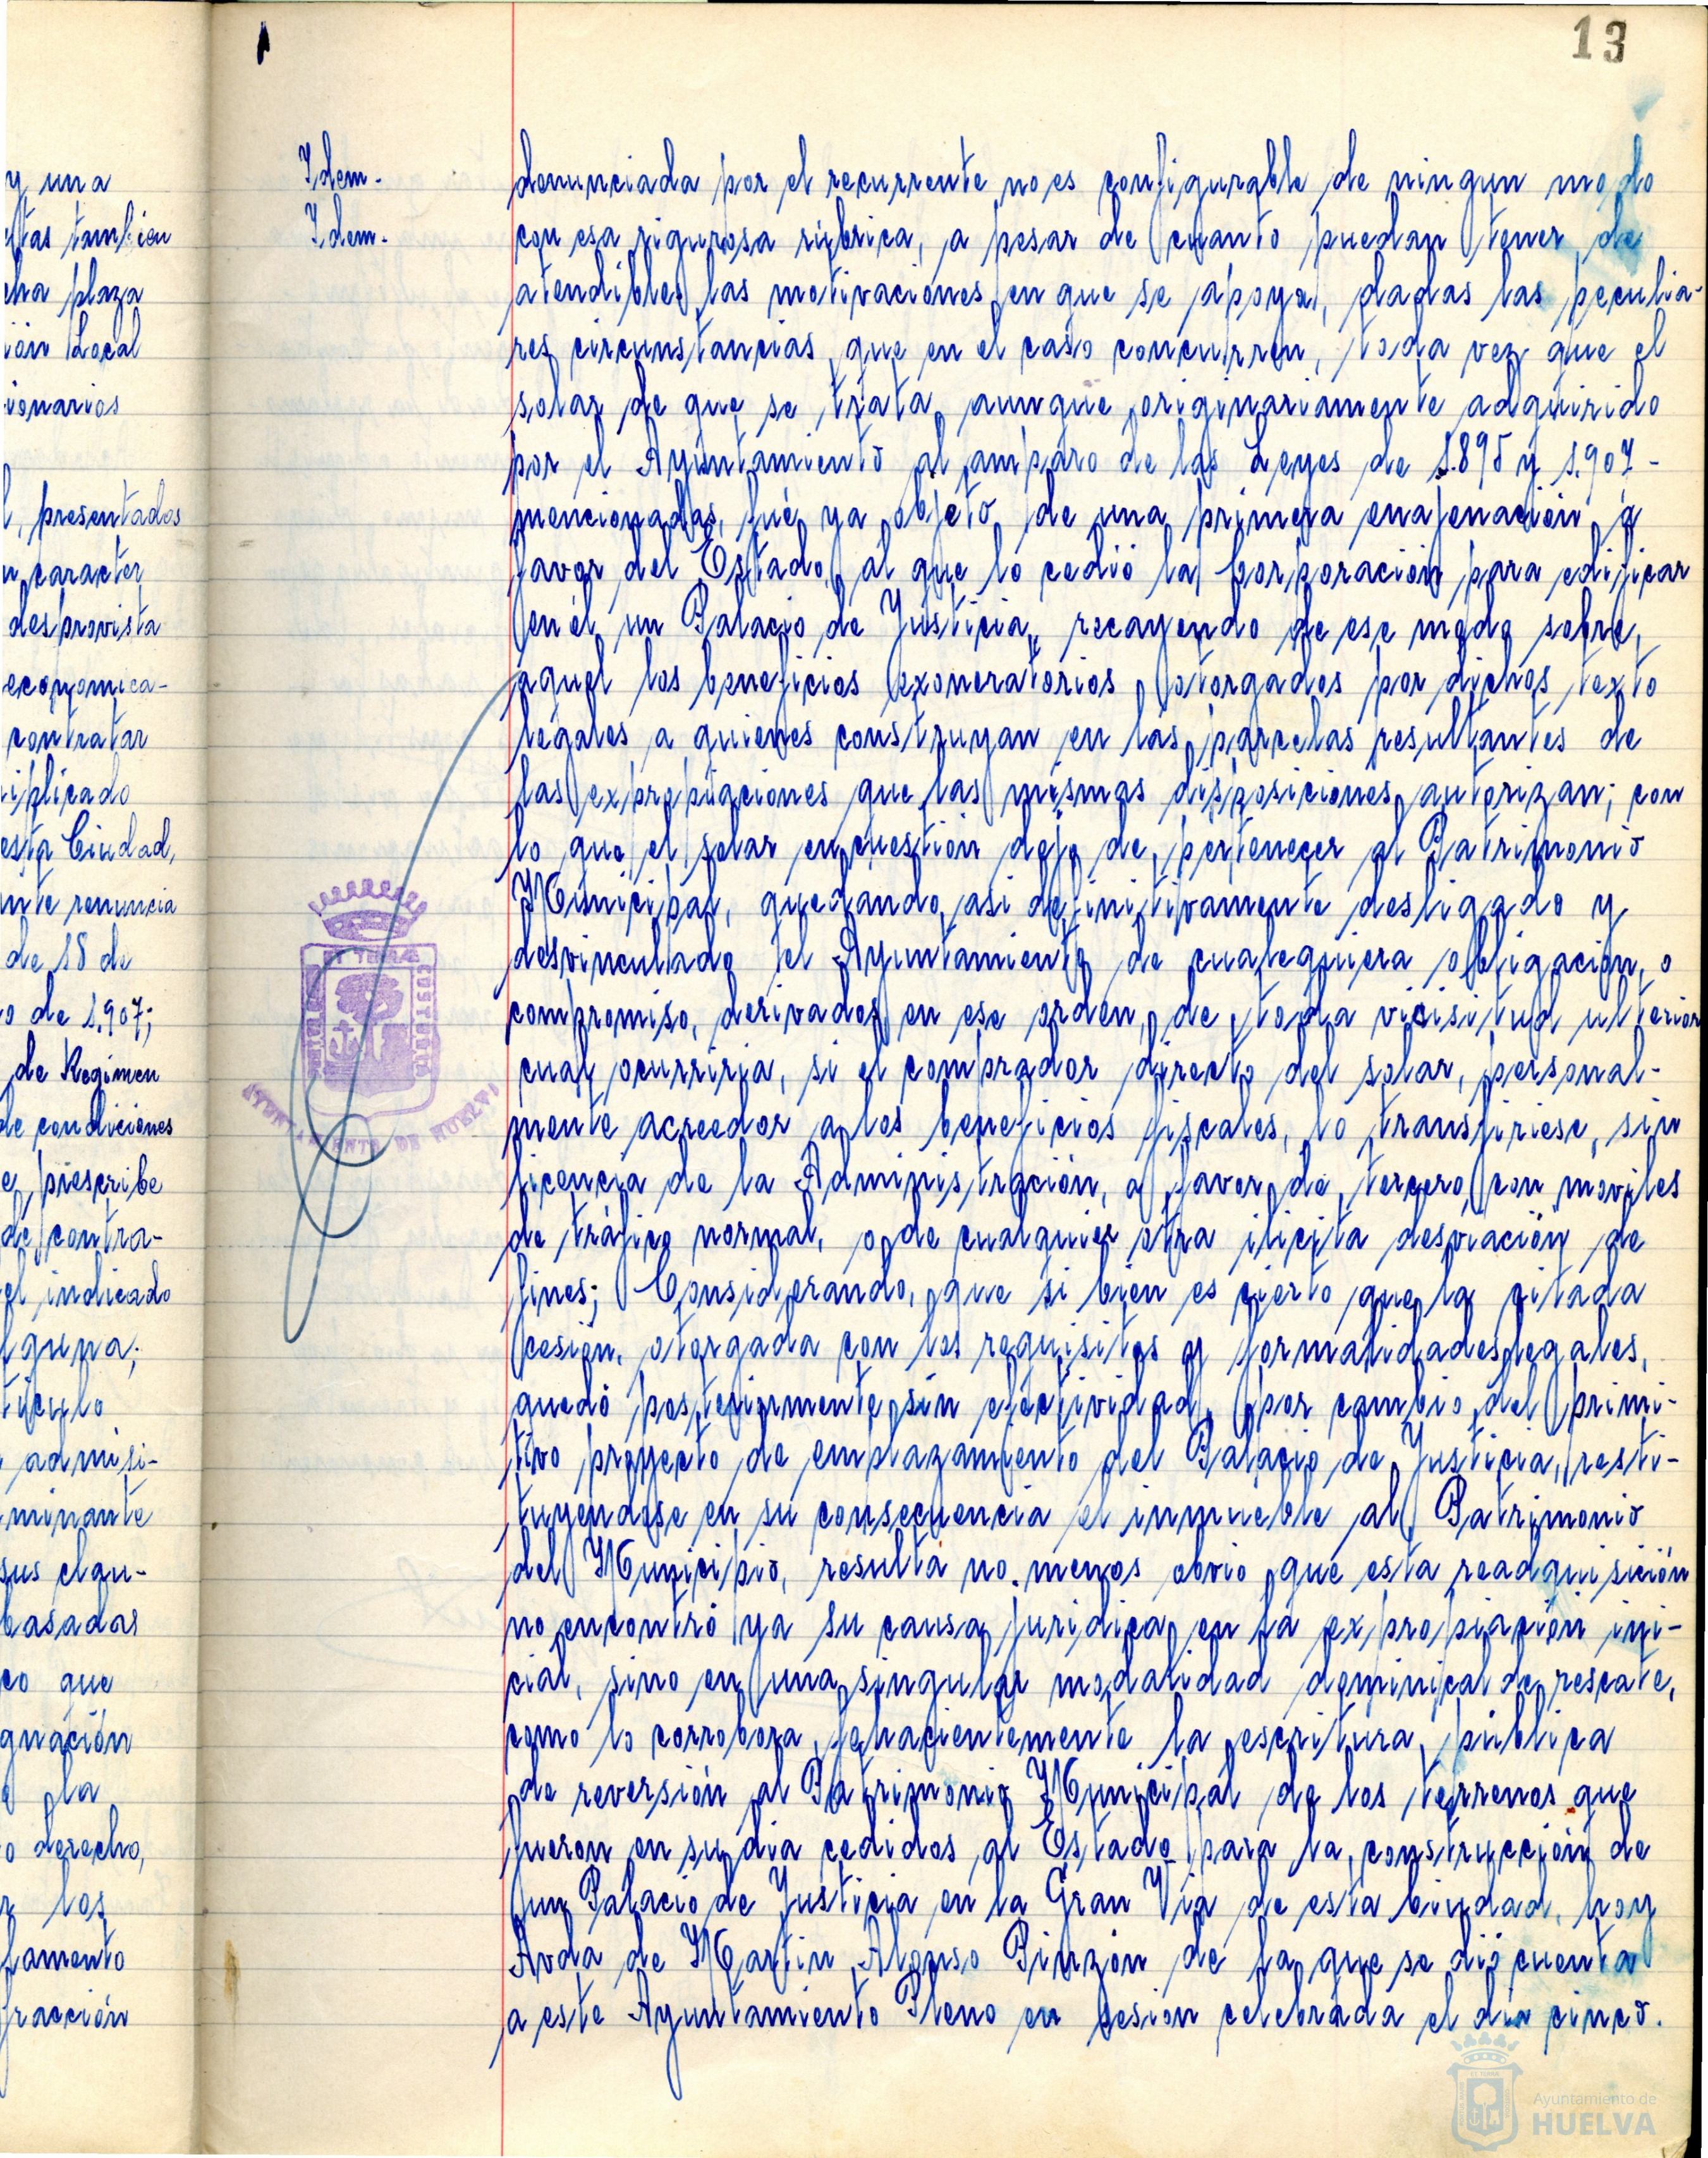 13
y una
estas tambien
cha plaza
ión Local
ionarios
l, presentados
n caracter
desprovista
economica-
contratar
iplicado
esta Ciudad,
nte renuncia
de 18 de
o de 1.907;
de Regimen
de condiciones
e prescribe
de contra-
el indicado
lguna;
tículo
admisi-
minante
sus clau-
basadas
co que
gnación
e la
o derecho,
r los
lamento
fracción
Idem.
Idem.
denunciada por el recurrente no es configurable de ningun modo
con esa rigurosa rúbrica, a pesar de cuanto puedan tener de
atendibles las motivaciones en que se apoya, dadas las peculia-
res circunstancias que en el caso concurren, toda vez que el
solar de que se trata, aunque originariamente adquirido
por el Ayuntamiento al amparo de las Leyes de 1.895 y 1.907-
mencionadas, fué ya objeto de una primera enajenación a
favor del Estado, al que lo cedió la Corporación para edificar
en él un Palacio de Justicia, recayendo de ese modo sobre
aquel los beneficios exoneratorios otorgados por dichos texto
legales a quienes construyan en las parcelas resultantes de
las expropiaciones que las mismas disposiciones autorizan; con
lo que el solar en cuestión dejo de pertenecer al Patrimonio
Municipal, quedando asi definitivamente desligado y
desvinculado el Ayuntamiento de cualequiera obligación, o
compromiso, derivados en ese orden, de toda vicisitud ulterior
cual ocurriria, si el comprador directo del solar, personal-
mente acreedor a los beneficios fiscales, lo transfiriese, sin
licencia de la Administración, a favor de tercero, con moviles
de tráfico normal, o de cualquier otra ilicita desviación de
fines; Considerando, que si bien es cierto que la citada
cesión, otorgada con los requisitos y formalidades legales,
quedó posteriormente sin efectividad, por cambio del primi-
tivo proyecto de emplazamiento del Palacio de Justicia, resti-
tuyendose en su consecuencia el inmueble al Patrimonio
del Municipio, resulta no menos obvio que esta readquisición
no encontró ya su causa juridica en la expropiación ini-
cial, sino en una singular modalidad dominical de rescate,
como lo corrobora fehacientemente la escritura pública
de reversión al Patrimonio Municipal de los terrenos que
fueron en su dia cedidos al Estado para la construcción de
un Palacio de Justicia en la Gran Via de esta ciudad, hoy
Avda de Martin Alonso Pinzón de la que se dió cuenta
a este Ayuntamiento Pleno en sesion celebrada el dia cinco.
AYUNTAMIENTO DE HUELVA
Ayuntamiento de
HUELVA